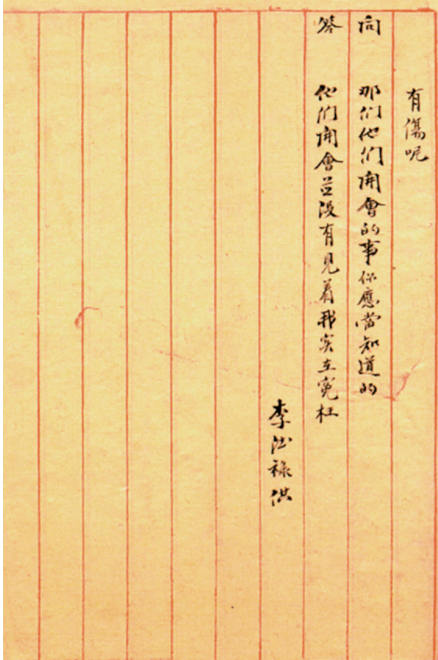 有傷呢
问 那们他们開會的事你應當知道的
答 他们開會並没有見着我实在冤枉
李德禄供